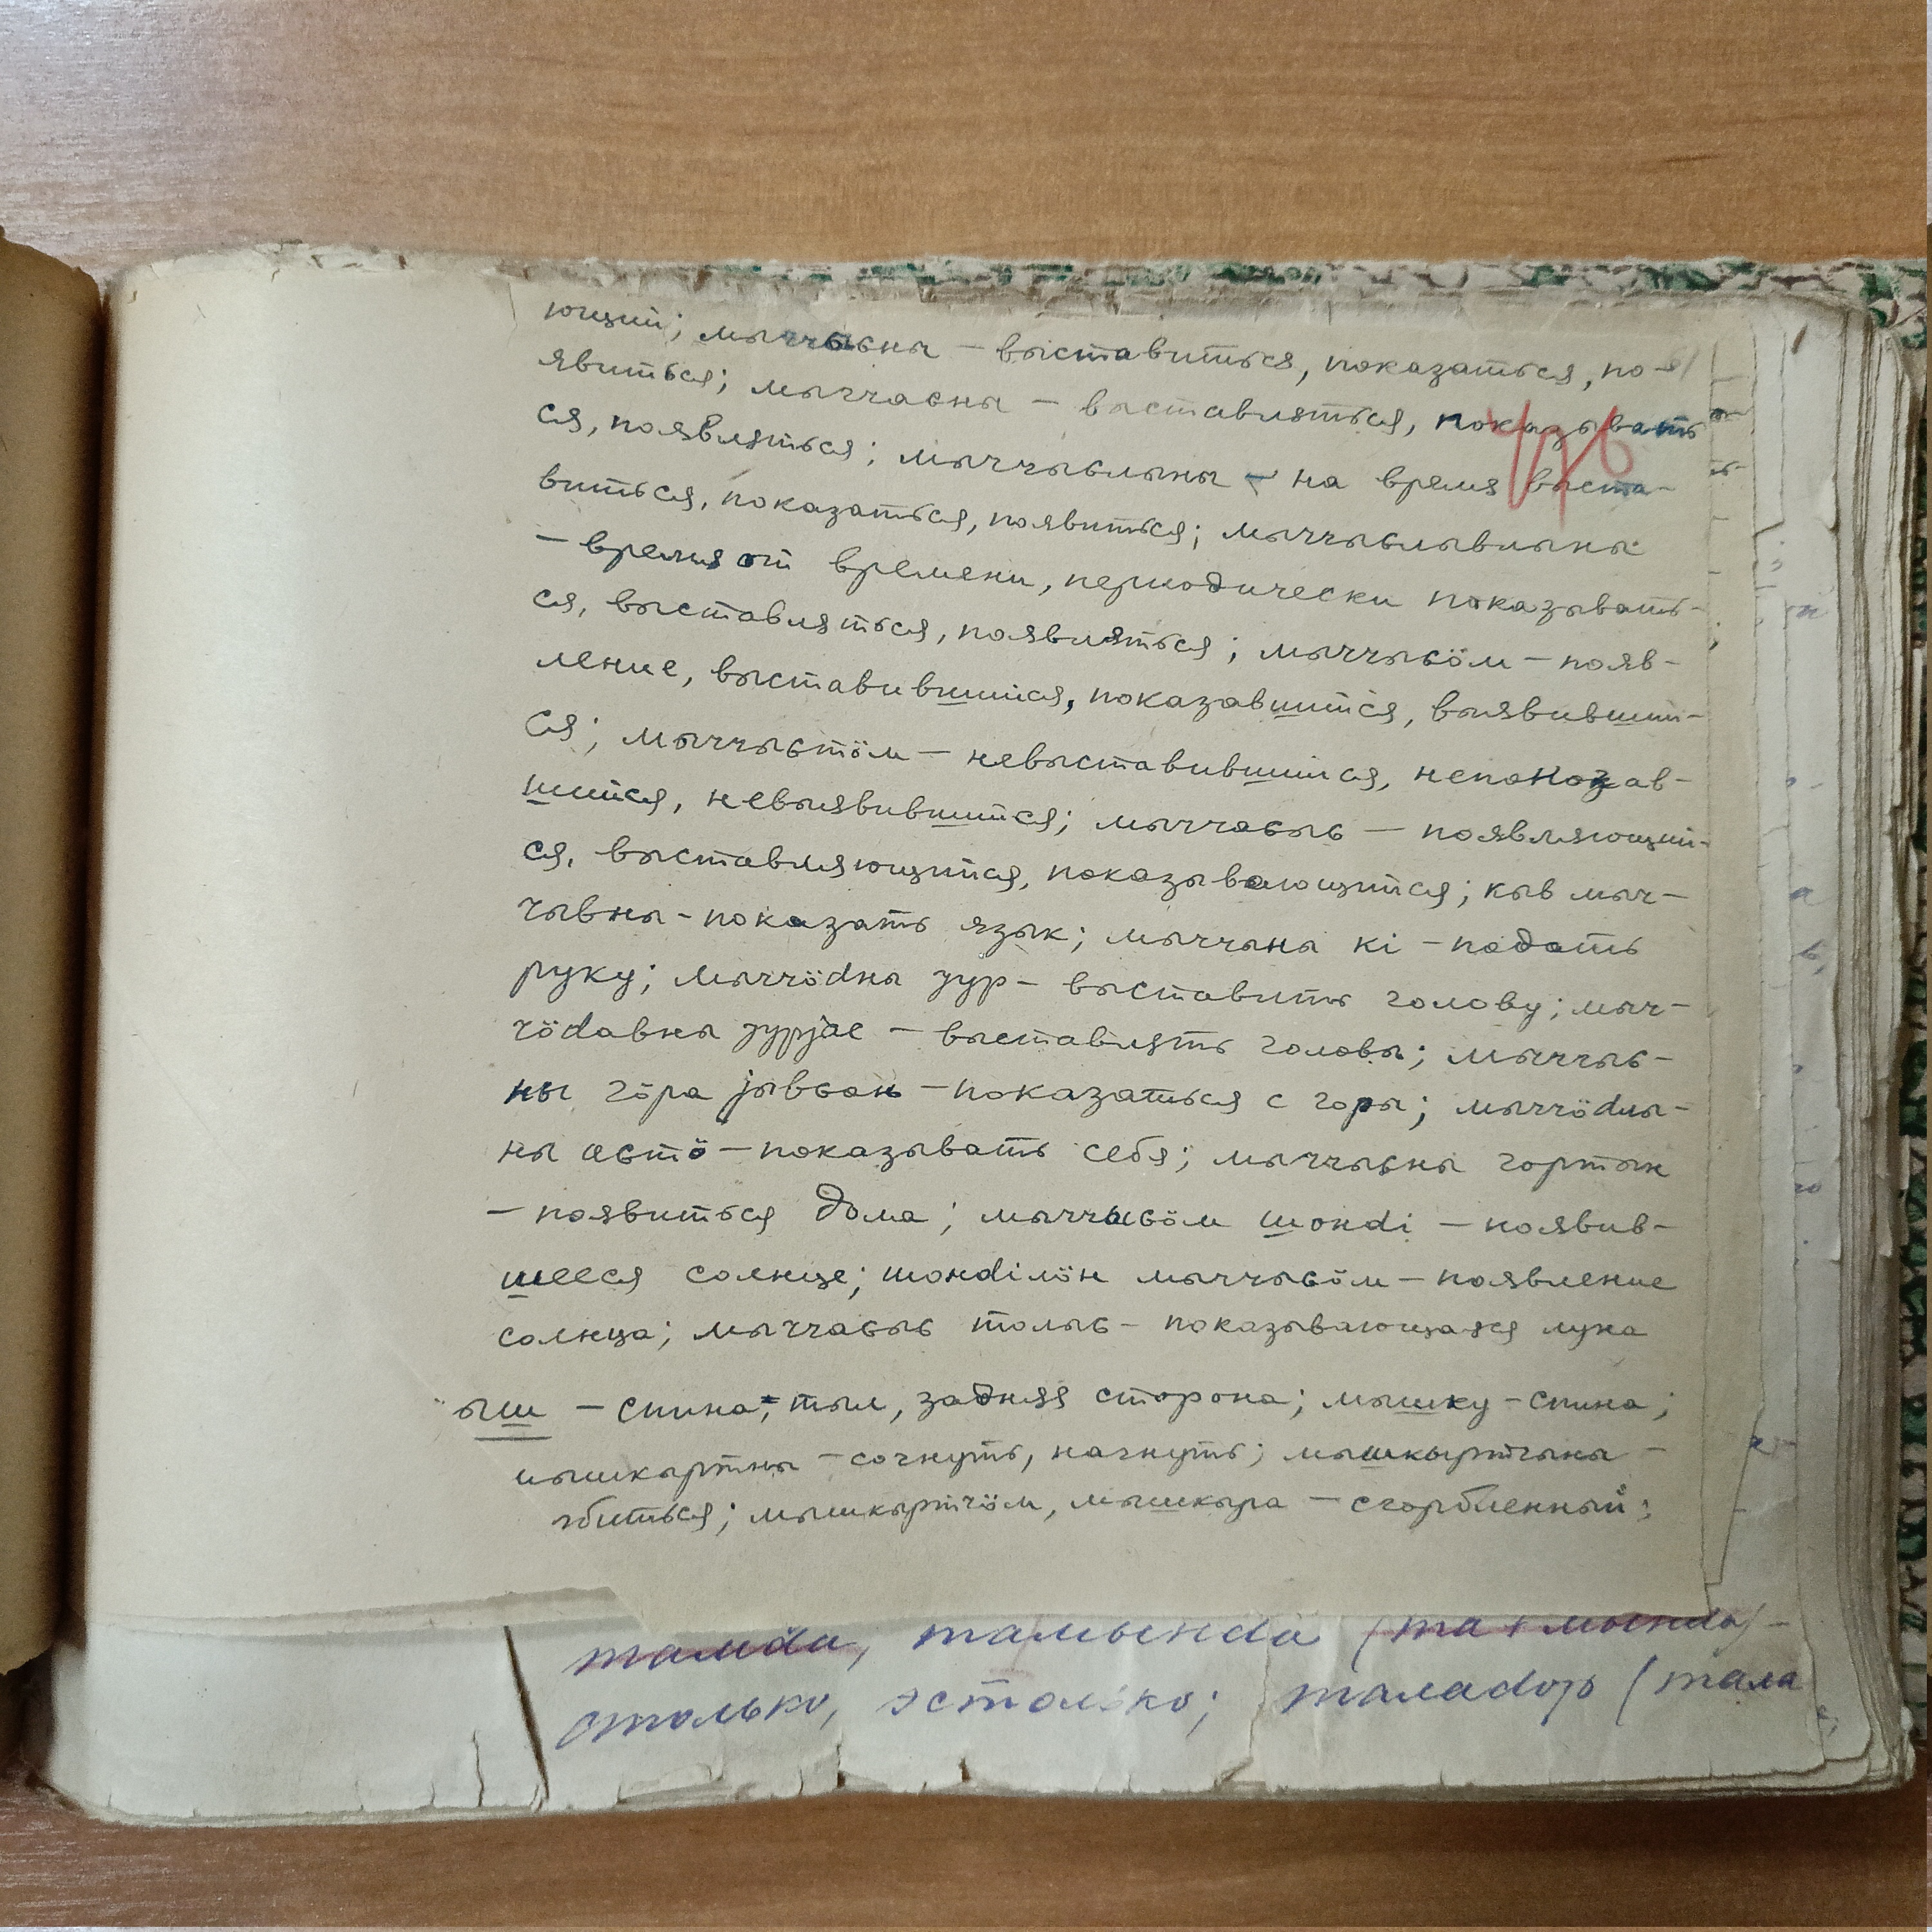 ющий; мыччыԍны – выставиться, показаться, по-
явиться; мыччаԍны – выставляться, показывать
ся, появляться; мыччыԍлыны – на время выста-
виться, показаться, появиться; мыччыԍлывлыны
– время от времени, периодически показывать-
ся, выставляться, появляться; мыччыԍӧм – появ-
ление, выставившийся, показавшийся, выявивший-
ся; мыччыԍтӧм – невыставившийся, непоказав-
шийся, невыявившийся; мыччаԍыԍ – появляющий-
ся, выставляющийся, показывающийся; кыв мыч-
чывны – показать язык; мыччыны кі – подать
руку; мыччӧdны јур – выставить голову; мыч-
чӧdавны јурјас – выставлять головы; мыччыԍ-
ны гӧра јывԍаԋ – показаться с горы; мыччӧdлы-
ны аԍтӧ – показывать себя; мыччыԍны гортын
– появиться дома; мыччыԍӧм шонdі – появив-
шееся солнце; шонdілӧн мыччыԍӧм – появление
солнца; мыччаԍыԍ толыԍ – показывающаяся луна
476
ыш – спина, тыл, задняя сторона; мышку – спина;
мышкыртны – согнуть, нагнуть; мышкыртчыны –
збиться; мышкыртчӧм, мышкыра – сгорбленный;
тамынdа (та + мынdа) –
столько, эстолько; талаdор (тала